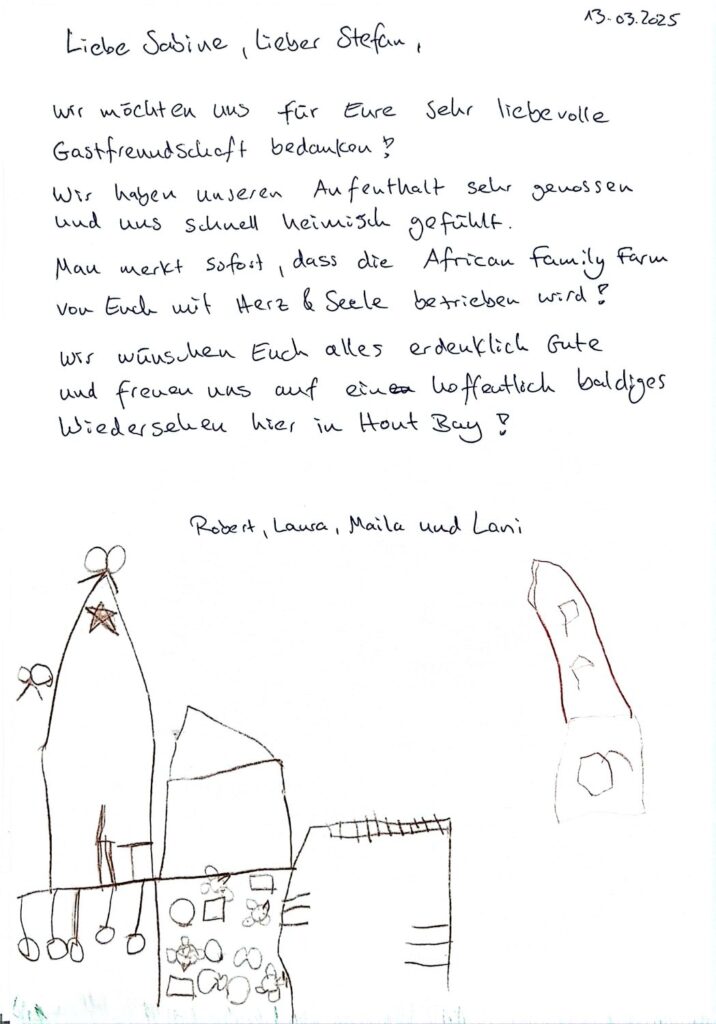 13.03.2025
Liebe Sabine, lieber Stefan,
wir möchten uns für Eure sehr liebevolle
Gastfreundschaft bedanken!
Wir haben unseren Aufenthalt sehr genossen
und uns schnell heimisch gefühlt.
Man merkt sofort, dass die African Family Farm
von Euch mit Herz & Seele betrieben wird!
Wir wünschen Euch alles erdenklich Gute
und freuen uns auf ein hoffentlich baldiges
Wiedersehen hier in Hout Bay!
Robert, Laura, Maila und Lani